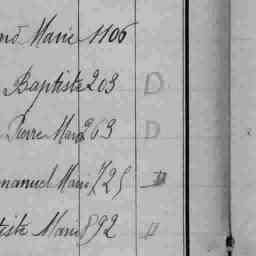 nd Marie 1106
Baptiste 203 D
Pierre Marie 263 D
manuel Marie 725 D
tiste Marie 892 D